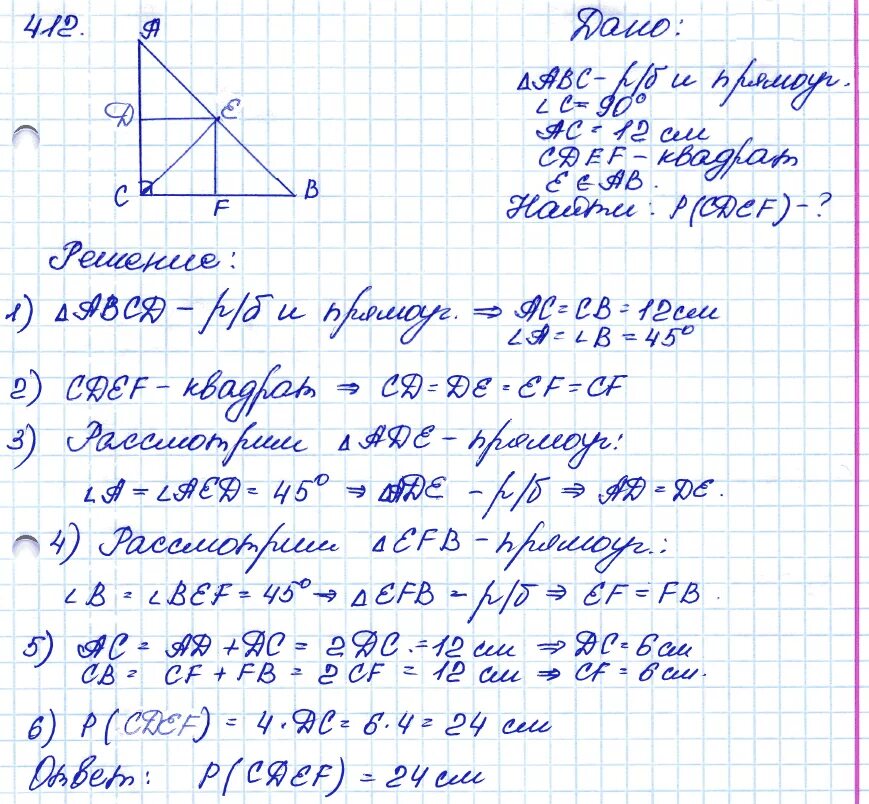 412.
A
D
E
C
F
B
Дано:
△ABC – р/б и прямоуг.
∠C = 90°
AC = 12 см
CDEF – квадрат
E ∈ AB.
Найти: P(CDEF) – ?
Решение:
1) △ABCD – р/б и прямоуг. ⇒ AC = CB = 12 см
∠A = ∠B = 45°
2) CDEF – квадрат ⇒ CD = DE = EF = CF
3) Рассмотрим △ADE – прямоуг:
∠A = ∠AED = 45° ⇒ △ADE – р/б ⇒ AD = DE.
4) Рассмотрим △EFB – прямоуг.:
∠B = ∠BEF = 45° → △EFB – р/б ⇒ EF = FB.
5) AC = AD + DC = 2DC. = 12 см ⇒ DC = 6 см
CB = CF + FB = 2 CF = 12 см ⇒ CF = 6 см.
6) P(CDEF) = 4 · DC = 6 · 4 = 24 см
Ответ: P(CDEF) = 24 см